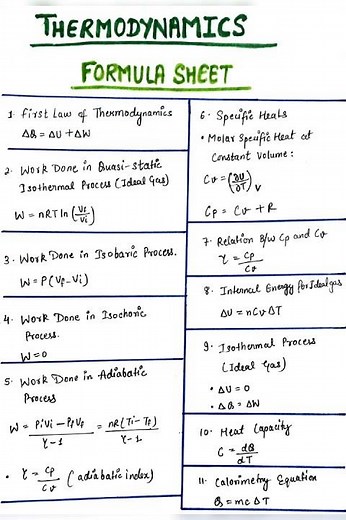 THERMODYNAMICS
FORMULA SHEET
1. First Law of Thermodynamics
ΔQ = ΔU + ΔW
2. Work Done in Quasi-static
Isothermal Process (Ideal Gas)
W = nRT ln (Vf/Vi)
3. Work Done in Isobaric Process.
W = P(Vf - Vi)
4. Work Done in Isochoric
Process.
W = 0
5. Work Done in Adiabatic
Process
W = PiVi - PfVf / γ-1 = nR(Ti - Tf) / γ-1
• γ = Cp/Cv (adiabatic index)
6. Specific Heats
• Molar Specific Heat at
Constant Volume:
Cv = (∂U/∂T)v
Cp = Cv + R
7. Relation B/w Cp and Cv
γ = Cp/Cv
8. Internal Energy for Ideal gas
ΔU = nCvΔT
9. Isothermal Process
(Ideal Gas)
• ΔU = 0
• ΔQ = ΔW
10. Heat Capacity
C = dQ/dT
11. Calorimetry Equation
Q = mcΔT